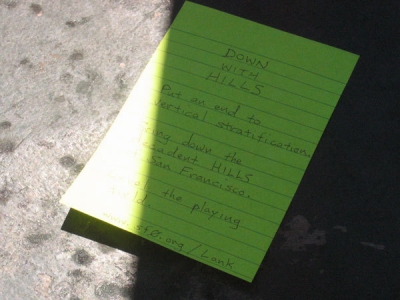 DOWN
WITH
HILLS
Put an end to
vertical stratification.
Bring down the
decadent HILLS
of San Francisco.
the playing
field.
sf0.org/Lank